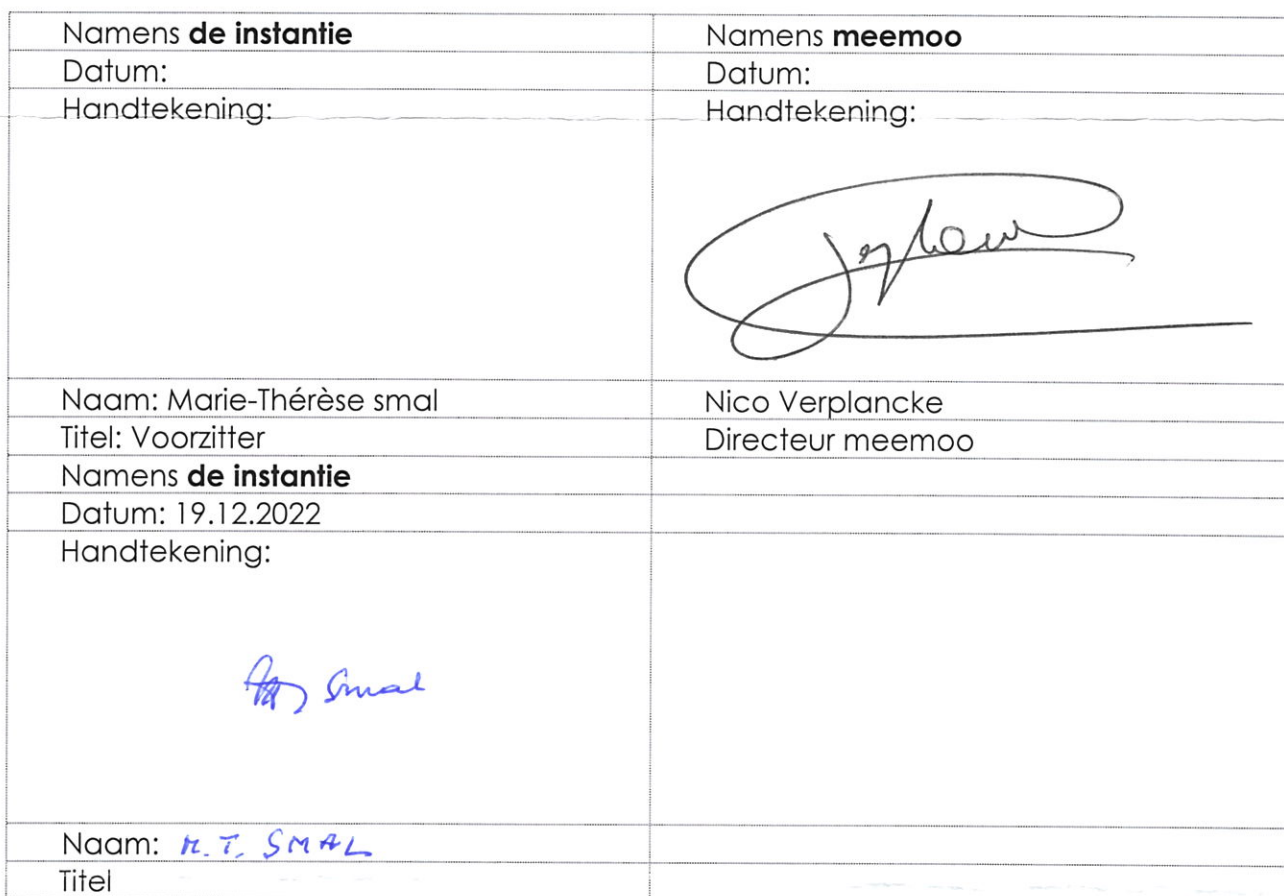 Namens de instantie
Namens meemoo
Datum:
Datum:
Handtekening:
Handtekening:
Naam: Marie-Thérèse smal
Nico Verplancke
Titel: Voorzitter
Directeur meemoo
Namens de instantie
Datum: 19.12.2022
Handtekening:
Smal
Naam: M.T. SMAL
Titel